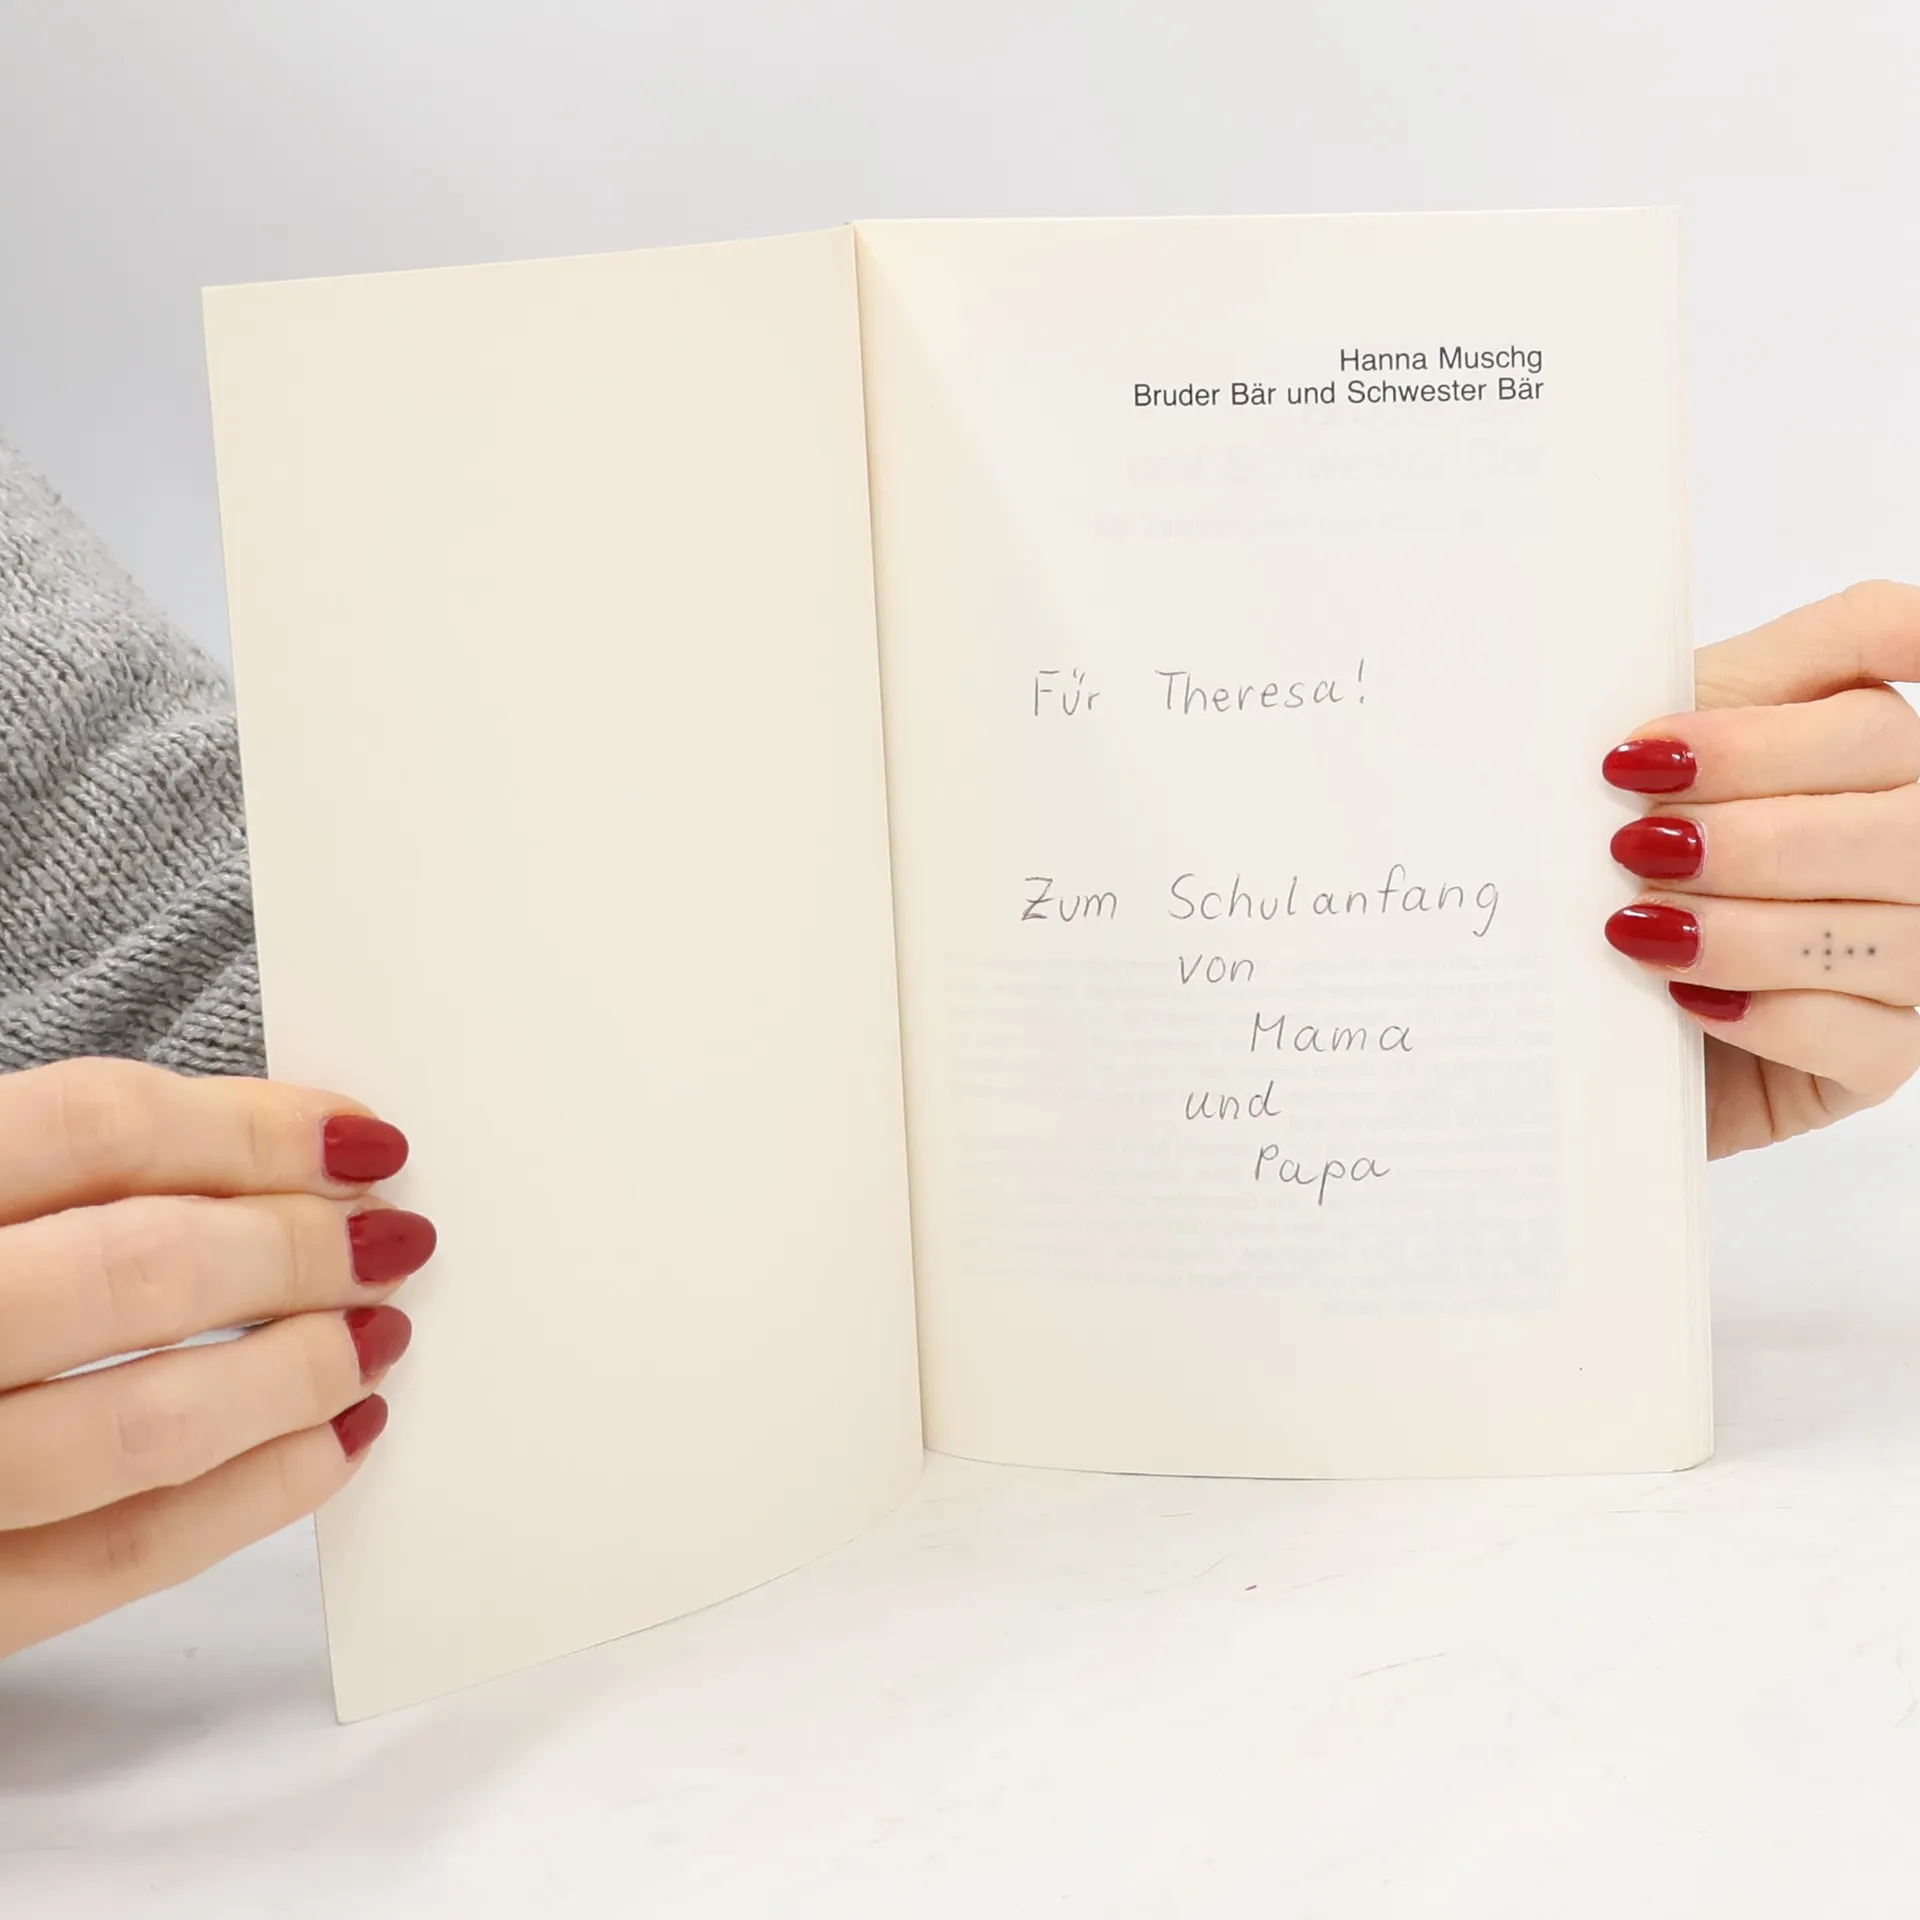 Hanna Muschg
Bruder Bär und Schwester Bär
und Schwester Bär
Für Theresa!
Zum Schulanfang
von
Mama
und
Papa